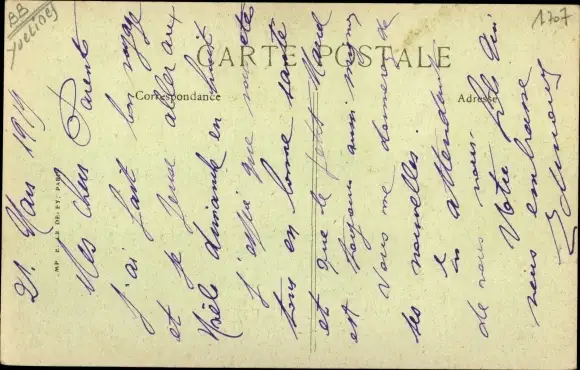 BB
Yvelines
1707
CARTE POSTALE
Correspondance
Adresse
21 Mars 1919
Mes chers Parents
J'ai fait bon voyage
et je pense aller aux
dimanche en huit
J'espère que vous êtes
tous en bonne santé
et que le petit Marcel
est toujours aussi mignon
Vous me donnerez de
ses nouvelles.
en attendant
de vous
Votre fils qui
vous embrasse
Edmond